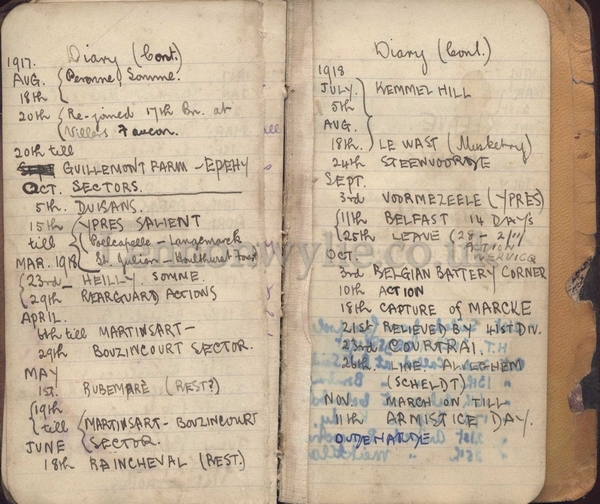 Diary (Cont.)
1917.
AUG. Peronne, Somme.
18th
20th Re-joined 17th Bn. at
Villers Faucon.
20th till
GUILLEMONT FARM - EPEHY
OCT. SECTORS.
5th. DUISANS.
15th YPRES SALIENT
till Poelcapelle - Langemarck
MAR. 1918 St. Julien - Houlthurst Forest
23rd - HEILLY. SOMME.
29th REARGUARD ACTIONS
APRIL.
6th till MARTINSART -
29th BOUZINCOURT SECTOR.
MAY
1st. RUBEMPRÉ (REST?)
19th
till MARTINSART - BOUZINCOURT
JUNE SECTOR.
18th RAINCHEVAL (REST.)
Diary (Cont.)
1918
JULY. KEMMEL HILL
5th
AUG.
18th. LE WAST (Musketry)
24th STEENVOORDE
SEPT.
3rd VORMEZEELE (YPRES)
11th BELFAST 14 DAYS
25th LEAVE (28 - 2/11
ACTION
OCT
3rd BELGIAN BATTERY CORNER
10th ACTION
18th CAPTURE of MARCKE
21st RELIEVED BY 41st DIV.
23rd COURTRAI.
26th. LINE AVELGHEM
(SCHELDT)
NOV. MARCH ON TILL
11th ARMISTICE DAY.
OUDENARDE